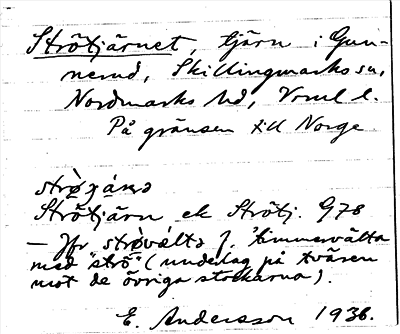 Strötjärnet, tjärn i Gun-
nerud, Skillingmarks sn,
Nordmarks hd, Vrml l.
På gränsen till Norge
Strötjärn ek Strötj. G78
– Jfr strøvälta f. 'timmervälta
med "strö" (underlag på tvären
mot de övriga stockarna).
E. Andersson 1936.